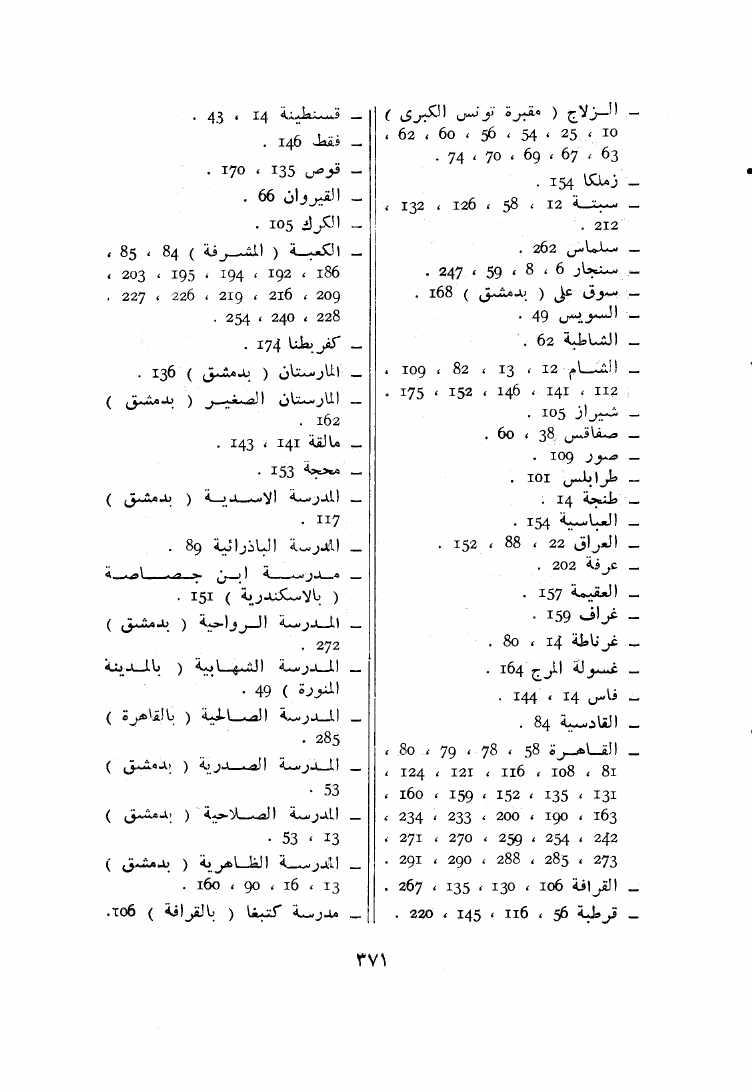 – الـزلاج ( مقبرة تونس الكبرى )
10 ، 25 ، 54 ، 56 ، 60 ، 62 ،
63 ، 67 ، 69 ، 70 ، 74 .
– زملكا 154 .
– سبتـة 12 ، 58 ، 126 ، 132 ،
212 .
– سلماس 262 .
– سنجار 6 ، 8 ، 59 ، 247 .
– سوق علي ( بدمشق ) 168 .
– السويس 49 .
– الشاطبة 62 .
– الشـام 12 ، 13 ، 82 ، 109 ،
112 ، 141 ، 146 ، 152 ، 175 .
– شيراز 105 .
– صفاقس 38 ، 60 .
– صور 109 .
– طرابلس 101 .
– طنجة 14 .
– العباسية 154 .
– العراق 22 ، 88 ، 152 .
– عرفة 202 .
– العقيمة 157 .
– غراف 159 .
– غرناطة 14 ، 80 .
– غسولة المرج 164 .
– فاس 14 ، 144 .
– القادسية 84 .
– القـاهـرة 58 ، 78 ، 79 ، 80 ،
81 ، 108 ، 116 ، 121 ، 124 ،
131 ، 135 ، 152 ، 159 ، 160 ،
163 ، 190 ، 200 ، 233 ، 234 ،
242 ، 254 ، 259 ، 270 ، 271 ،
273 ، 285 ، 288 ، 290 ، 291 .
– القرافة 106 ، 130 ، 135 ، 267 .
– قرطبة 56 ، 116 ، 145 ، 220 .
– قسنطينة 14 ، 43 .
– فقط 146 .
– قوص 135 ، 170 .
– القيروان 66 .
– الكرك 105 .
– الكعبـة ( المشـرفة ) 84 ، 85 ،
186 ، 192 ، 194 ، 195 ، 203 ،
209 ، 216 ، 219 ، 226 ، 227 ،
228 ، 240 ، 254 .
– كفربطنا 174 .
– المارستان ( بدمشق ) 136 .
– المارستان الصغيـر ( بدمشق )
162 .
– مالقة 141 ، 143 .
– محجة 153 .
– المدرسة الاسـديـة ( بدمشق )
117 .
– المدرسة الباذرائية 89 .
– مـدرسـة ابـن جـصـاصـة
( بالاسكندرية ) 151 .
– المـدرسة الـرواحية ( بدمشق )
272 .
– المـدرسة الشهـابية ( بالمـدينة
المنورة ) 49 .
– المـدرسة الصـالحية ( بالقاهرة )
285 .
– المـدرسة الصـدرية ( بدمشق )
53 .
– المدرسة الصـلاحية ( بدمشق )
13 ، 53 .
– المـدرسـة الظـاهرية ( بدمشق )
13 ، 16 ، 90 ، 160 .
– مدرسة كتبغا ( بالقرافة ) 106.
٣٧١